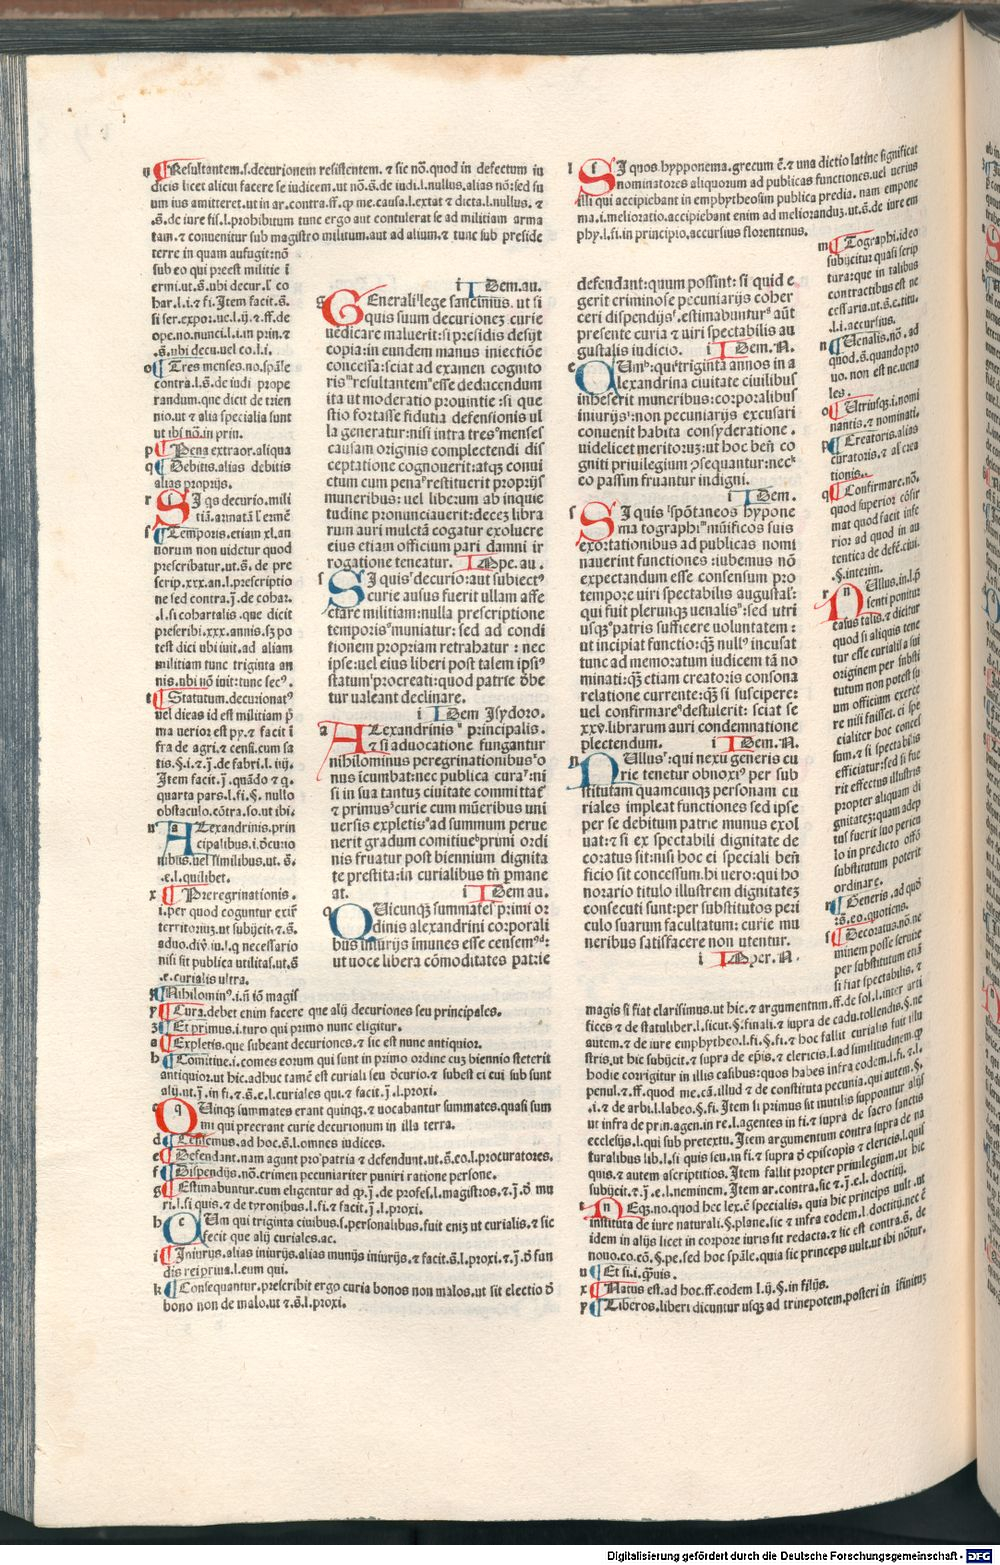 Resultantem.s.decurionem resistentem. ⁊ sic nō.quod in defectum iu
dicis licet alicui facere se iudicem.ut nō.s̄.de iudi.l.nullus.alias nō:sed su
um ius amitteret.ut in ar.contra.ff.q̄ me.causa.l.extat ⁊ dicta.l.nullus. ⁊
.s̄.de iure fis.l.prohibitum tunc ergo aut contulerat se ad militiam arma
tam. ⁊ convenitur sub magistro militum.aut ad alium.⁊ tunc sub preside
terre in quam aufugit:nō
sub eo qui preest militie ī
ermi.ut.s̄.ubi decur.l' co
har.l.i.⁊ fi.Item facit.s̄.
si ser.expor.ue.l.ij.⁊ ff.de
ope.no.nunci.l.i.in prin.⁊
.s̄.ubi decu.uel co.l.i.
o Tres menses.no.sp̄ale
contra.l.s̄.de iudi prope
randum.que dicit de trien
nio.ut ⁊ alia specialia sunt
ut ibi nō.in prin.
p Pena extraor.aliqua
q Debitis.alias debitis
alias proprijs.
r SI q̄s decurio.mili
tiā.armatā l' ermē
s Temporis.etiam xl.an
norum non uidetur quod
prescribatur.ut.s̄. de pre
scrip.xxx.an.l.prescriptio
ne sed contra.j̄.de cohar.
.l.si cohartalis.que dicit
prescribi.xxx.annis.sꝫ po
test dici ubi iuit.ad aliam
militiam tunc triginta an
nis.ubi nō iuit:tunc secꝰ.
t Statutum.decurionatꝰ
uel dicas id est militiam p̄
ma uerior est py.⁊ facit ī
fra de agri.⁊ censi.cum sa
tis.§.i.⁊ j̄.de fabri.l.iiij.
Item facit.j̄.quādo ⁊ q̄.
quarta pars.l.fi.§. nullo
obstaculo.cōtra.so.ut ibi.
u ALexandrinis.prin
cipalibus.i.d̄curio
nibus.uel similibus.ut. s̄.
.e.l.quilibet.
x Peregrinationis.
i.per quod coguntur exire
territoriuꝫ.ut subijcit.⁊.s̄.
a duo.div̄.iu.l.q necessario
nisi sit publica utilitas.ut.s̄
.e.curialis ultra.
Nihilominꝰ.i.n̄ iō magis
Cura.debet enim facere que alij decuriones seu principales.
Et primus.i.turo qui primo nunc eligitur.
a Expletis.que subeant decuriones.⁊ sic est nunc antiquior.
b Comitiue.i.comes eorum qui sunt in primo ordine cuꝫ biennio steterit
antiquior.ut hic.adhuc tamē est curiali seu d̄curio.⁊ subest ei cui sub sunt
alij.ut j̄.in fi.⁊.s̄.e.l.curiales qui.⁊ facit.j̄.l.proxi.
c QUinqꝫ summates erant quinqꝫ.⁊ uocabantur summates.quasi sum
mi qui preerant curie decurionum in illa terra.
d Censemus.ad hoc.s̄.l.omnes iudices.
e Defendant.nam agunt pro patria ⁊ defendunt.ut.s̄.co.l.procuratores.
f Dispendijs.nō.crimen pecuniariter puniri ratione persone.
g Estimabuntur.cum eligentur ad qd.j̄.de profes.l.magistros.⁊.j̄.d̄ mu
ri.l.si quis.⁊ de tyronibus.l.fi.⁊ facit.j̄.l.proxi.
h CUm qui triginta ciuibus.s.personalibus.fuit eniꝫ ut curialis.⁊ sic
fecit que alij curiales.ac.
i Iniurijs.alias iniurijs.alias munijs iniurijs.⁊ facit.s̄.l.proxi.⁊.j̄.d̄ fun
dis rei priua.l.eum qui.
k Consequantur.prescribit ergo curia bonos non malos.ut sit electio d̄
bono non de malo.ut ⁊.s̄.l.proxi.
i IDem.au.
GEnerali lege sancimus. ut si
quis suum decurioneꝫ curie
uedicare maluerit:si presidis desijt
copia:in eundem manus iniectiōe
concessa:sciat ad examen cognito
ris resultantem esse deducendum
ita ut moderatio prouintie: si que
stio fortasse fidutia defensionis ul
la generatur:nisi intra tres menses
causam originis complectendi dis
ceptatione cognouerit:atqꝫ conui
ctum cum pena restituerit proprijs
muneribus: uel liberum ab inquie
tudine pronunciauerit:deceꝫ libra
rum auri mulcta cogatur exoluere
eius etiam officium pari damni ir
rogatione teneatur. IDpe.au.
SI quis decurio:aut subiectꝰ
curie ausus fuerit ullam affe
ctare militiam:nulla prescriptione
temporis muniatur: sed ad condi
tionem propriam retrahatur : nec
ipse:uel eius liberi post talem ipsiꝰ
statum procreati:quod patrie d̄be
tur ualeant declinare.
i IDem Isydoro.
ALexandrinis principalis.
⁊ si aduocatione fungantur
nihilominus peregrinationibus o
nus īcumbat:nec publica cura:ni
si in sua tantuꝫ ciuitate committat̄
⁊ primus curie cum mūeribus uni
uersis expletis ad summum perue
nerit gradum comitiue primi ordi
nis fruatur post biennium dignita
te prestita:in curialibus tn̄ p̄mane
at. i IDem au.
QUicunqꝫ summates primi or
dinis alexandrini corporali
bus iniurijs īmunes esse censemꝰ:
ut uoce libera cōmoditates patrie
l SI quos.hypponema.grecum ē.⁊ una dictio latine significat
nominatores aliquorum ad publicas functiones.uel uerius
illi qui accipiebant in emphyteosim publica predia. nam empone
ma.i.melioratio.accipiebant enim ad meliorandum.ut.s̄.de iure em
phy.l.fi.in principio.accursius florentinus.
defendant:quum possint: si quid e
gerit criminose pecuniarijs coher
ceri dispendijs.estimabuntur aūt
presente curia ⁊ uiri spectabilis au
gustalis iudicio. i IDem.N.
QUm:qui triginta annos in a
lexandrina ciuitate ciuilibus
inheserit muneribus:corporalibus
iniurijs:non pecuniarijs excusari
conuenit habita consyderatione.
uidelicet meritoruꝫ:ut hoc ben̄ co
gniti priuilegium ↄsequantur:nec
eo passim fruantur indigni.
i IDem.
SI quis spōtaneos hypone
ma tographi mūificos suis
exortationibus ad publicas nomi
nauerint functiones:iubemus nō
expectandum esse consensum pro
tempore uiri spectabilis augustal:
qui fuit plerunqꝫ uenalis:sed utri
usqꝫ patris sufficere uoluntatem :
ut incipiat functio:qꝫ nullꝰ incusat
tunc ad memoratum iudicem tā no
minati:qꝫ etiam creatoris consona
relatione currente:qꝫ si suscipere:
uel confirmare destulerit: sciat se
xxv.librarum auri condemnatione
plectendum. i IDem.N.
NUllus:qui nexu generis cu
rie tenetur obnoxiꝰ per sub
stitutam quamcunqꝫ personam cu
riales impleat functiones sed ipse
per se debitum patrie munus exol
uat:⁊ si ex spectabili dignitate de
coratus sit:nisi hoc ei speciali ben̄
ficio sit concessum.hi uero:qui ho
norario titulo illustrem dignitateꝫ
consecuti sunt:per substitutos peri
culo suarum facultatum: curie mu
neribus satisfacere non utentur.
i IDper.N.
m Tographi.ideo
subijcitur quasi scrip
tura:que in talibus
contractibus est ne
cessaria.ut.s̄.e.titu.
.l.i.accursius.
n Uenalis.nō.ad
quod.s̄.quando pro
uo. non est ne.uena
les.
o Utriusqꝫ.i.nomi
nantis.⁊ nominati.
p Creatoris.alias
curatoris.⁊ al' crea
tionis.
q Confirmare.nō.
quod superior cōfir
mat quod facit infe
rior ad quod in au
tentica de defē.ciui.
.§.interim.
r NUllus.in.l.p̄
senti ponitur
casus talis.⁊ dicitur
quod si aliquis tene
tur esse curialis a sui
originem per substi
tutum non potest su
um officium exerce
re nisi fuisset. ei spe
cialiter hoc conces
sum.⁊ si spectabilis
efficiatur:sed si fue
rit effectus illustris
propter aliquam di
gnitateꝫ:quam adep
tus fuerit suo pericu
lo in predicto offō
substitutum poterit
ordinare.
Generis.ad quod
.s̄.eo.quotiens.
s Decoratus.nō.ne
minem posse seruire
per substitutum enā
si fiat spectabilis.⁊
magis si fiat clarissimus.ut hic.⁊ argumentum.ff.de sol.l.inter arti
fices ⁊ de statuliber.l.sicut.§.finali.⁊ supra de cadu.tollendis.§.ne
autem.⁊ de iure emphytheo.l.fi.§.fi.⁊ hoc fallit curialis fuit illu
stris.ut hic subijcit.⁊ supra de ep̄is.⁊ clericis.l.ad similitudinem.qd
hodie corrigitur in illis casibus:quos habes infra eodem.l.fi.⁊.l.
penul.⁊.ff.quod me.cā.illud ⁊ de constituta pecunia.qui autem.§.
.i.⁊ de arbi.l.labeo.§.fi. Item si primus sit inutilis supponatur alijs
ut infra de prin.agen.in re.l.agentes in fi.⁊ supra de sacro sanctis
ecclesijs.l.qui sub pretextu.Item argumentum contra supra de na
turalibus lib.l.si quis seu.in fi.⁊ supra d̄ episcopis ⁊ clericis.l.quis
quis.⁊ autem ascriptitios. Item fallit propter priuilegium.ut hic
subijcit.⁊ j̄.e.l.neminem. Item ar.contra.sic ⁊ j̄.e.l.doctitij.
t NEqꝫ.no.quod hec lex.ē specialis. quia hic princips uult.ut
instituta de iure naturali.§.plane.sic ⁊ infra eodem.l.doctitij.nec ē
idem in alijs licet in corpore iuris sit redacta.⁊ sic est contra.s̄. de
nouo.co.cō.§.pe.sed hoc sp̄ale.quia sic princeps uult.ut ibi nōtur.
u Et si.i.q̄uis.
x Natus est.ad hoc.ff.eodem l.ij.§.in filijs.
y Liberos.liberi dicuntur usqꝫ ad trinepotem.posteri in ifinituꝫ
Digitalisierung gefördert durch die Deutsche Forschungsgemeinschaft - DFG